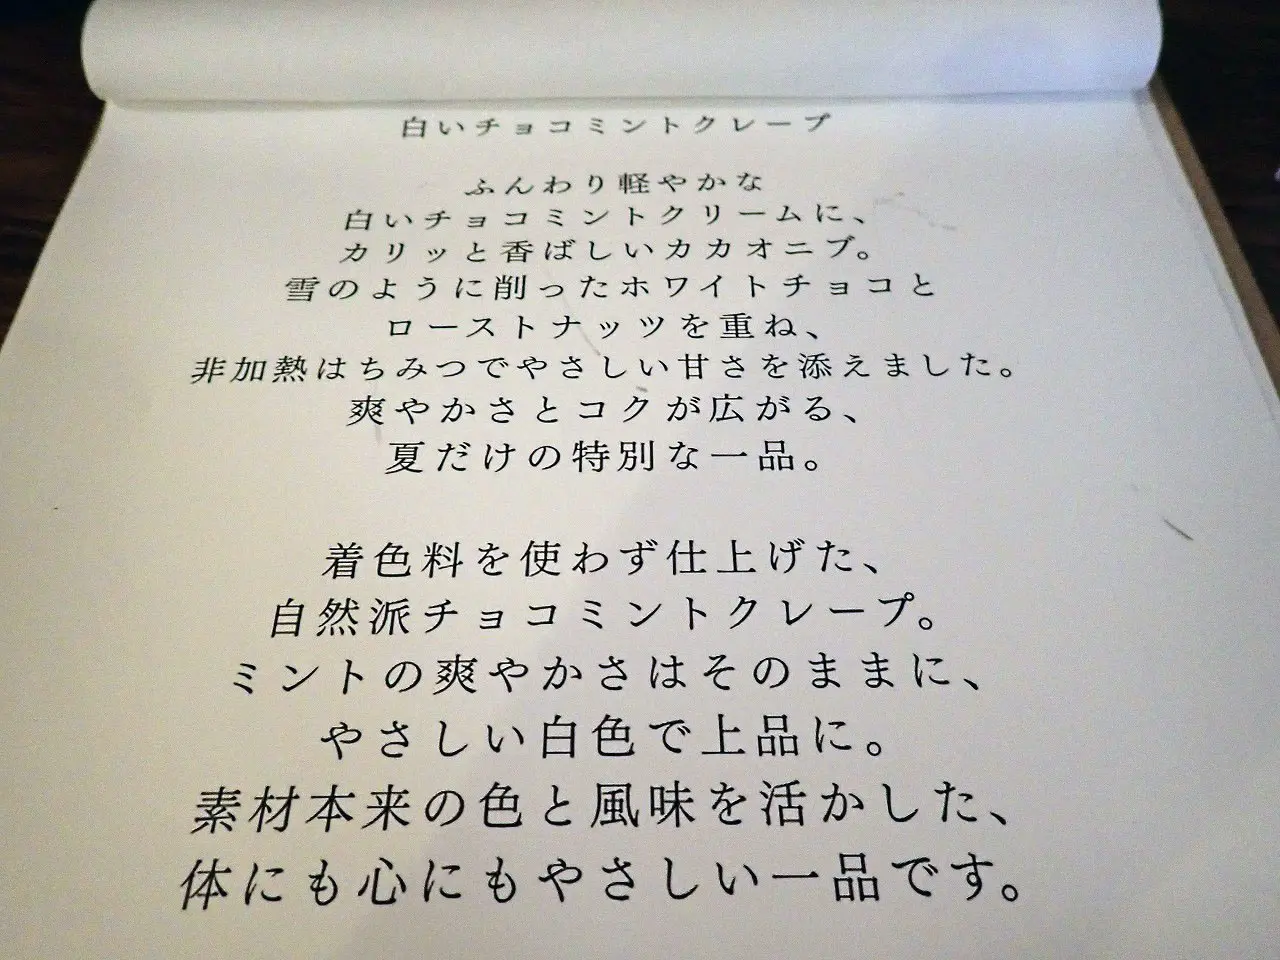 白いチョコミントクレープ
ふんわり軽やかな
白いチョコミントクリームに、
カリッと香ばしいカカオニブ。
雪のように削ったホワイトチョコと
ローストナッツを重ね、
非加熱はちみつでやさしい甘さを添えました。
爽やかさとコクが広がる、
夏だけの特別な一品。
着色料を使わず仕上げた、
自然派チョコミントクレープ。
ミントの爽やかさはそのままに、
やさしい白色で上品に。
素材本来の色と風味を活かした、
体にも心にもやさしい一品です。